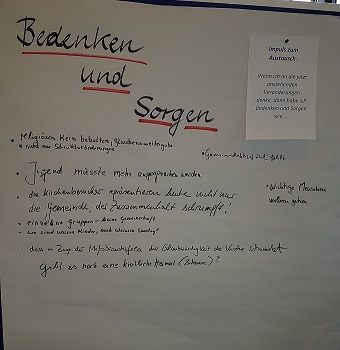 Bedenken
und
Sorgen
Impuls zum
Austausch:
Wenn ich an die jetzt
anstehenden
Veränderungen
denke, dann habe ich
Bedenken und Sorgen
wie ...
religiösen Kern behalten, Glaubensweitergabe
nicht nur Strukturänderungen
Jugend müsste mehr angesprochen werden
Wichtige Menschen
die Kirchenbesucher repräsentieren heute nicht nur
die Gemeinde, der Zusammenhalt schrumpft!
einzelne Gruppen - keine Gemeinschaft
wo sind unsere Kinder, nach
dass im Zuge die Glaubwürdigkeit der Kirche schwindet
gibt es noch eine kirchliche Heimat (Zuhause)?